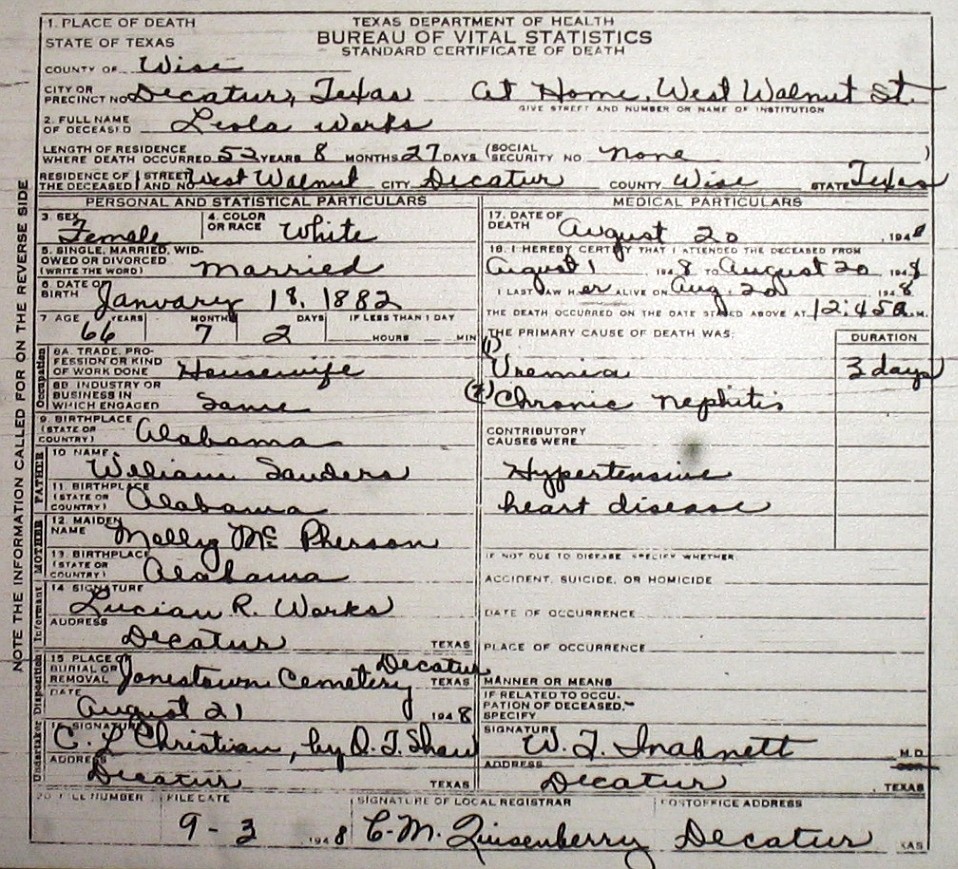 1. PLACE OF DEATH
TEXAS DEPARTMENT OF HEALTH
STATE OF TEXAS
BUREAU OF VITAL STATISTICS
STANDARD CERTIFICATE OF DEATH
COUNTY OF Wise
CITY OR PRECINCT NO Decatur, Texas At Home, West Walnut St.
GIVE STREET AND NUMBER OR NAME OF INSTITUTION
2. FULL NAME OF DECEASED Leola Works
LENGTH OF RESIDENCE WHERE DEATH OCCURRED 52 YEARS 8 MONTHS 27 DAYS (SOCIAL SECURITY NO none )
RESIDENCE OF THE DECEASED STREET AND NO West Walnut CITY Decatur COUNTY Wise STATE Texas
NOTE THE INFORMATION CALLED FOR ON THE REVERSE SIDE
PERSONAL AND STATISTICAL PARTICULARS
3. SEX Female 4. COLOR OR RACE White
5. SINGLE, MARRIED, WIDOWED OR DIVORCED (WRITE THE WORD) Married
6. DATE OF BIRTH January 18, 1882
7 AGE YEARS MONTHS DAYS IF LESS THAN 1 DAY
66 7 2 HOURS MIN
Occupation
8A. TRADE, PROFESSION OR KIND OF WORK DONE Housewife
8B INDUSTRY OR BUSINESS IN WHICH ENGAGED Same
9. BIRTHPLACE (STATE OR COUNTRY) Alabama
FATHER
10 NAME William Sanders
11. BIRTHPLACE (STATE OR COUNTRY) Alabama
MOTHER
12. MAIDEN NAME Molly McPherson
13. BIRTHPLACE (STATE OR COUNTRY) Alabama
Informant
14 SIGNATURE Lucian R. Works
ADDRESS Decatur TEXAS
Disposition
15 PLACE OF BURIAL OR REMOVAL Jonestown Cemetery Decatur TEXAS
DATE August 21 1948
Undertaker
SIGNATURE C. L Christian, by O. T. Shaw
ADDRESS Decatur TEXAS
MEDICAL PARTICULARS
17. DATE OF DEATH August 20, 1948
18. I HEREBY CERTIFY THAT I ATTENDED THE DECEASED FROM
August 1 1948 TO August 20 1948
I LAST SAW HER ALIVE ON Aug. 20 1948
THE DEATH OCCURRED ON THE DATE STATED ABOVE AT 12:45 a.M.
THE PRIMARY CAUSE OF DEATH WAS: DURATION
(1) Uremia 3 days
(2) Chronic nephitis
CONTRIBUTORY CAUSES WERE
Hypertensive
heart disease
IF NOT DUE TO DISEASE, SPECIFY WHETHER:
ACCIDENT, SUICIDE, OR HOMICIDE
DATE OF OCCURRENCE
PLACE OF OCCURRENCE
MANNER OR MEANS
IF RELATED TO OCCUPATION OF DECEASED, SPECIFY
SIGNATURE W. T. Inabnett M.D.
ADDRESS Decatur, TEXAS
20 FILE NUMBER FILE DATE SIGNATURE OF LOCAL REGISTRAR POSTOFFICE ADDRESS
9-3 1948 C. M. Quisenberry Decatur